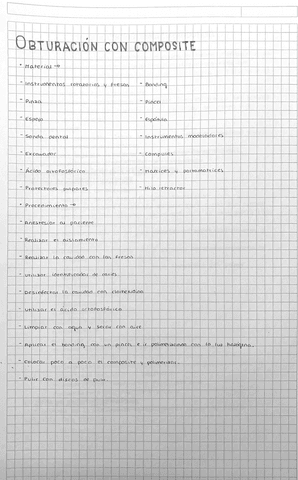 OBTURACIÓN CON COMPOSITE
- Material →
- Instrumentos rotatorios y fresas - Bonding
- Pinza - Pincel
- Espejo - Espátula
- Sonda dental - Instrumentos modeladores
- Excavador - Compules
- Ácido ortofosfórico - Matrices y portamatrices
- Protectores pulpares - Hilo retractor
- Procedimiento →
- Anestesiar al paciente
- Realizar el aislamiento
- Realizar la cavidad con las fresas
- Utilizar identificador de caries
- Desinfectar la cavidad con clorhexidina
- Utilizar el ácido ortofosfórico
- Limpiar con agua y secar con aire
- Aplicar el bonding con un pincel e ir polimerizando con la luz halógena.
- Colocar poco a poco el composite y polimerizar.
- Pulir con discos de pulir.